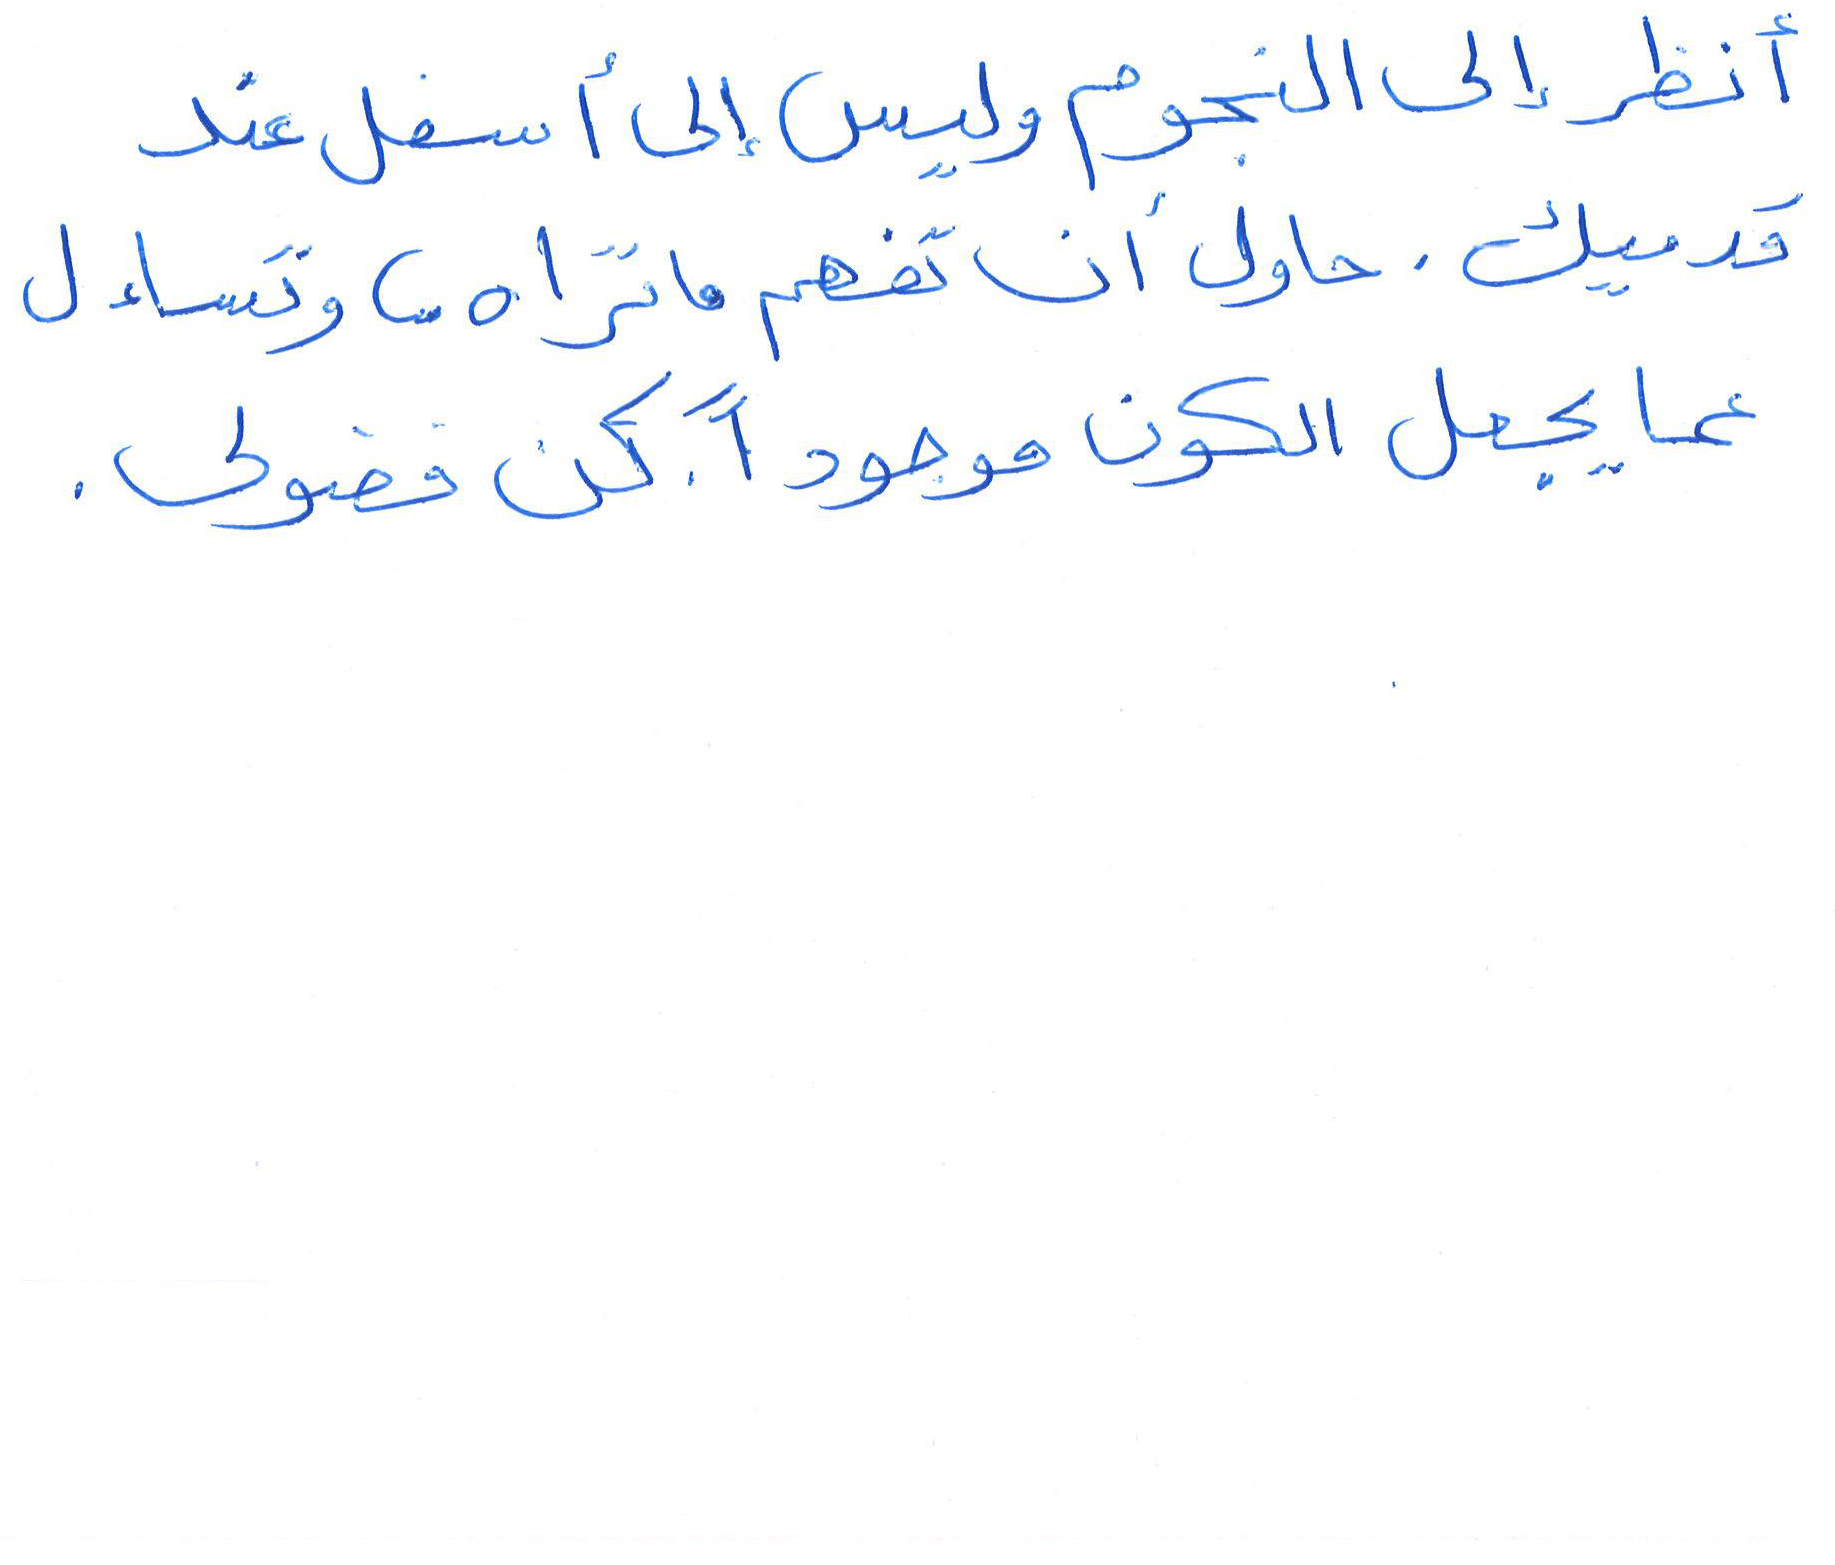 أنظر إلى النجوم وليس إلى أسفل عند
قدميك. حاول أن تفهم ما تراه، وتساءل
عما يجعل الكون موجوداً. كن فضولى.